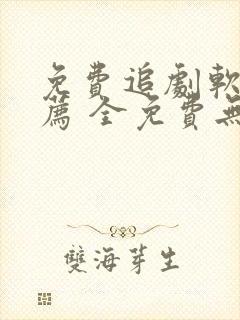 免費追劇軟
薦 全免費無
雙海芽生